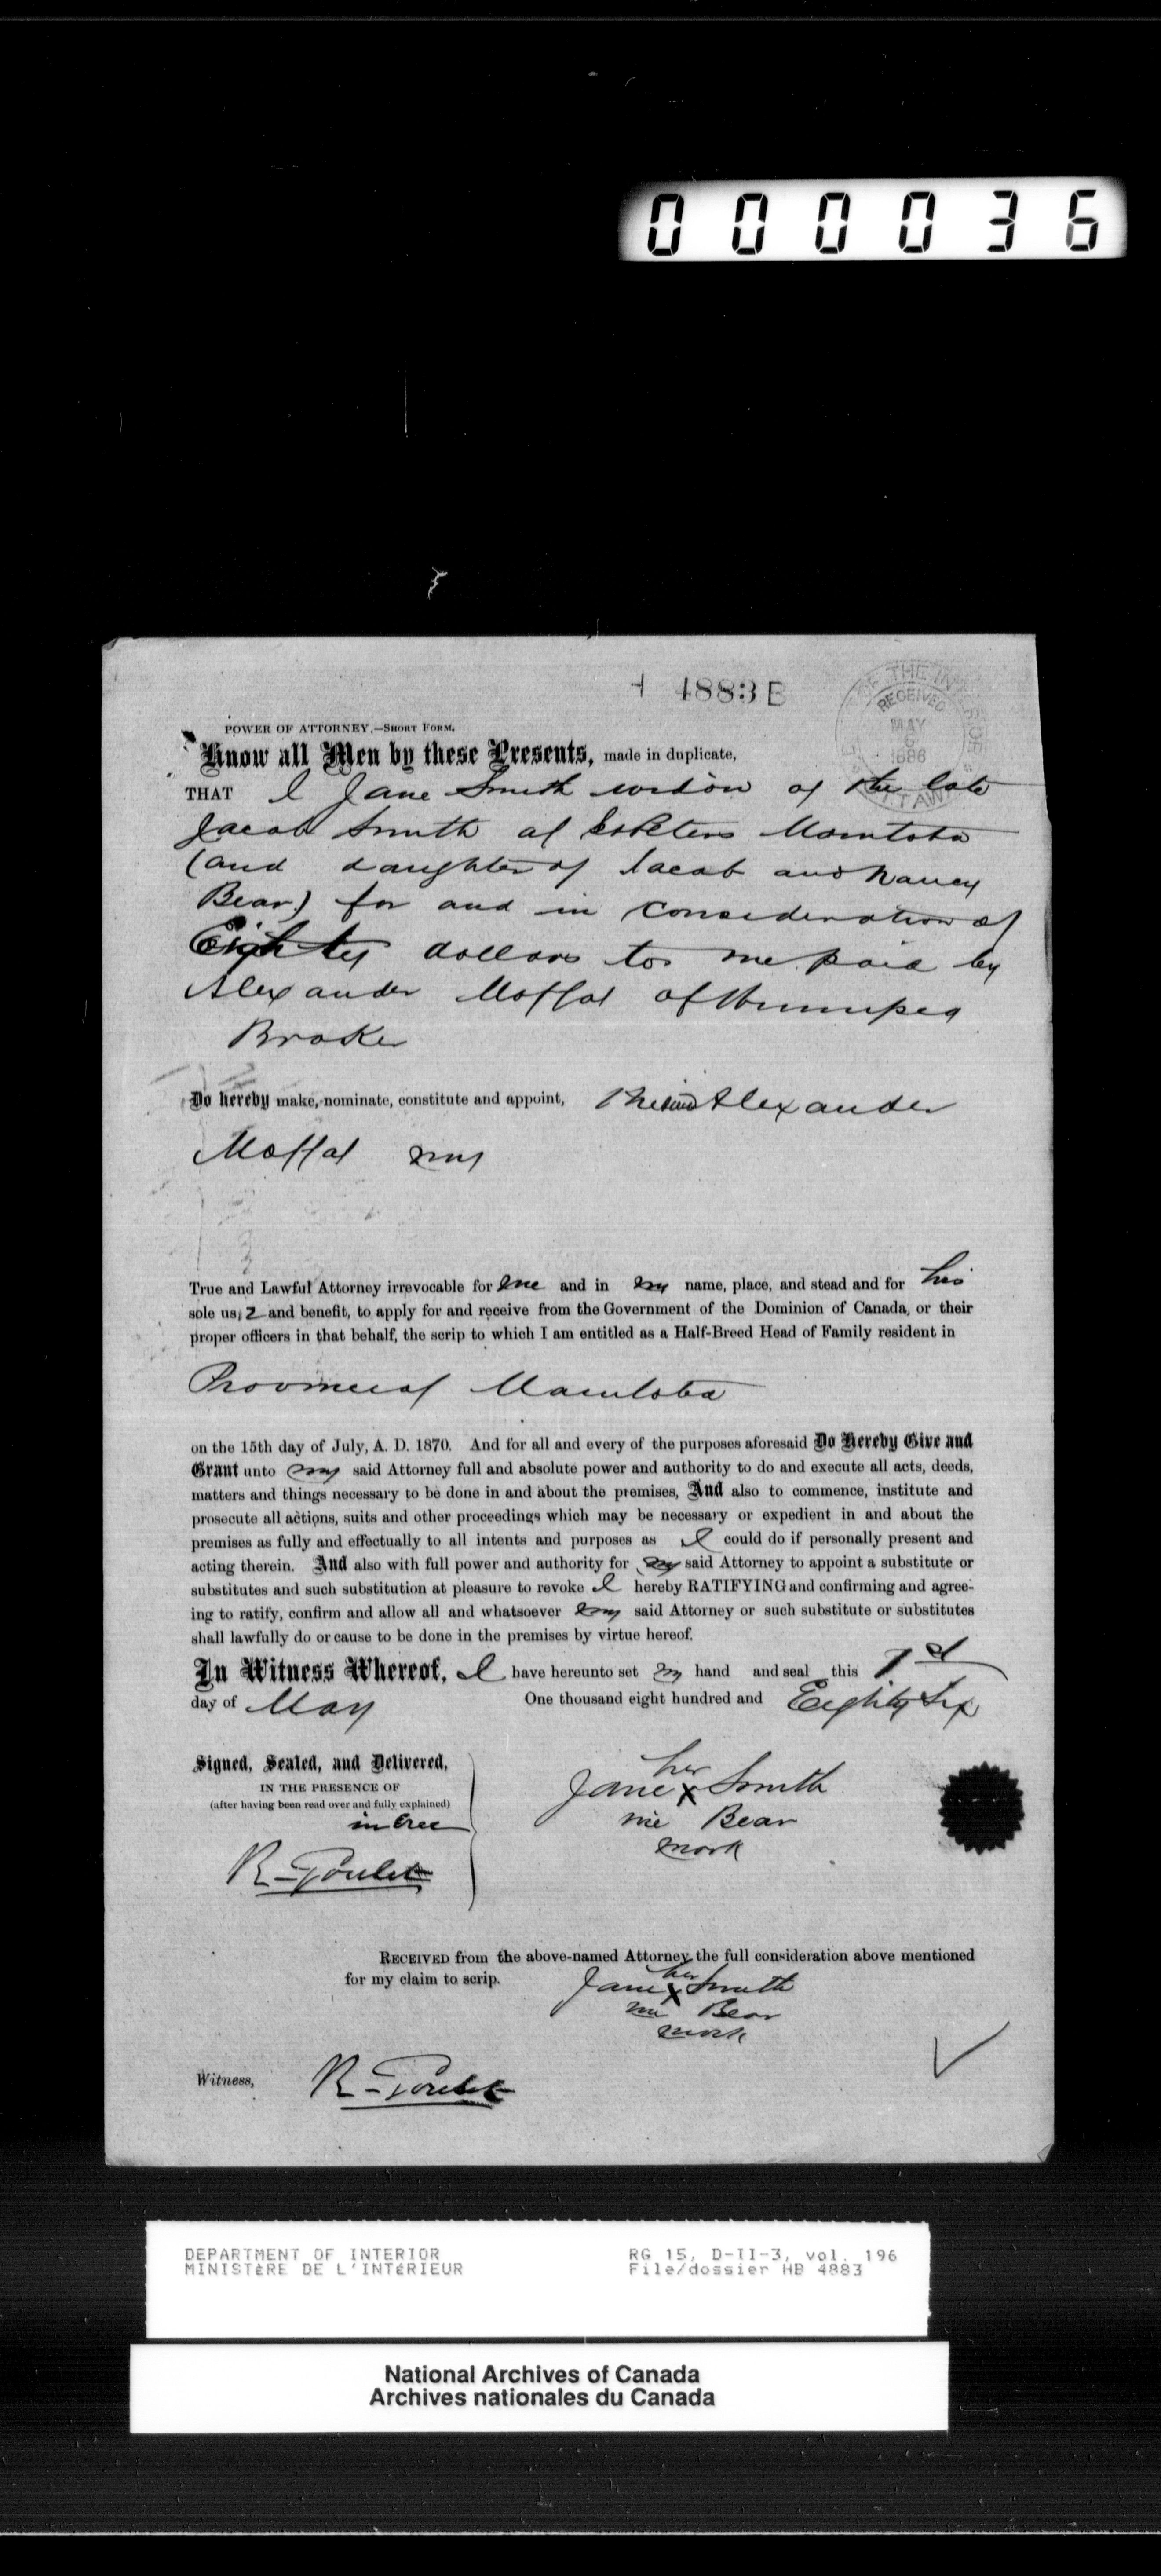 000036
4883 B
OF THE INTERIOR
RECEIVED
MAY
6
1886
OTTAWA
POWER OF ATTORNEY.—SHORT FORM.
Know all Men by these Presents, made in duplicate,
THAT I Jane Smith widow of the late
Jacob Smith of St Peters Manitoba
(and daughter of Jacob and Nancy
Bear) for and in consideration of
Eighty dollars to me paid by
Alexander Moffat of Winnipeg
Broker
Do hereby make, nominate, constitute and appoint, the said Alexander
Moffat my
True and Lawful Attorney irrevocable for me and in my name, place, and stead and for his
sole use and benefit, to apply for and receive from the Government of the Dominion of Canada, or their
proper officers in that behalf, the scrip to which I am entitled as a Half-Breed Head of Family resident in
Province of Manitoba
on the 15th day of July, A. D. 1870. And for all and every of the purposes aforesaid Do Hereby Give and
Grant unto my said Attorney full and absolute power and authority to do and execute all acts, deeds,
matters and things necessary to be done in and about the premises, And also to commence, institute and
prosecute all actions, suits and other proceedings which may be necessary or expedient in and about the
premises as fully and effectually to all intents and purposes as I could do if personally present and
acting therein. And also with full power and authority for my said Attorney to appoint a substitute or
substitutes and such substitution at pleasure to revoke I hereby RATIFYING and confirming and agree-
ing to ratify, confirm and allow all and whatsoever my said Attorney or such substitute or substitutes
shall lawfully do or cause to be done in the premises by virtue hereof.
In Witness Whereof, I have hereunto set my hand and seal this 1st
day of May One thousand eight hundred and Eighty Six
Signed, Sealed, and Delivered,
IN THE PRESENCE OF
(after having been read over and fully explained)
in Cree
R. Goulet
her
Jane X Smith
née Bear
mark
RECEIVED from the above-named Attorney the full consideration above mentioned
for my claim to scrip.
her
Jane X Smith
née Bear
mark
Witness, R. Goulet
DEPARTMENT OF INTERIOR
MINISTÈRE DE L'INTÉRIEUR
RG 15, D-II-3, vol. 196
File/dossier HB 4883
National Archives of Canada
Archives nationales du Canada